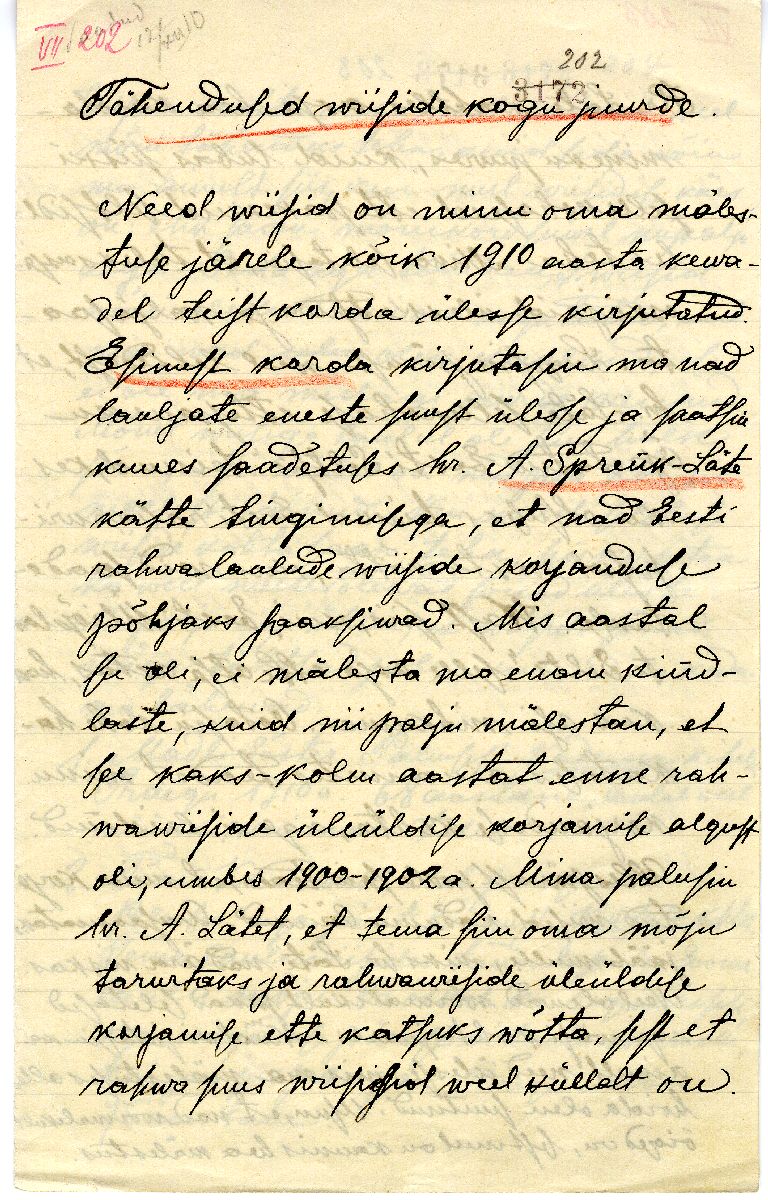 VII 202
202
3172
Tähendused wiiside kogu juurde.
Need wiisid on minu oma mäles-
tuse järele kõik 1910 aasta kewa-
del teist korda ülesse kirjutatud.
Esimest korda kirjutasin ma nad
lauljate eneste suust ülesse ja saatsin
kuues saadetuses hr. A. Spreük-Läte
kätte tingimisega, et nad Eesti
rahwalaulude wiiside korjanduse
põhjaks saaksiwad. Mis aastal
see oli, ei mälesta ma enam kind-
laste, kuid nii palju mälestan, et
see kaks-kolm aastat enne rah-
wawiiside üleüldise korjamise algust
oli, umbes 1900-1902 a. Mina palusin
hr. A. Lätet, et tema siin oma mõju
tarwitaks ja rahwawiiside üleüldise
korjamise ette katsuks wõtta, sest et
rahwa suus wiisisid weel küllalt on.